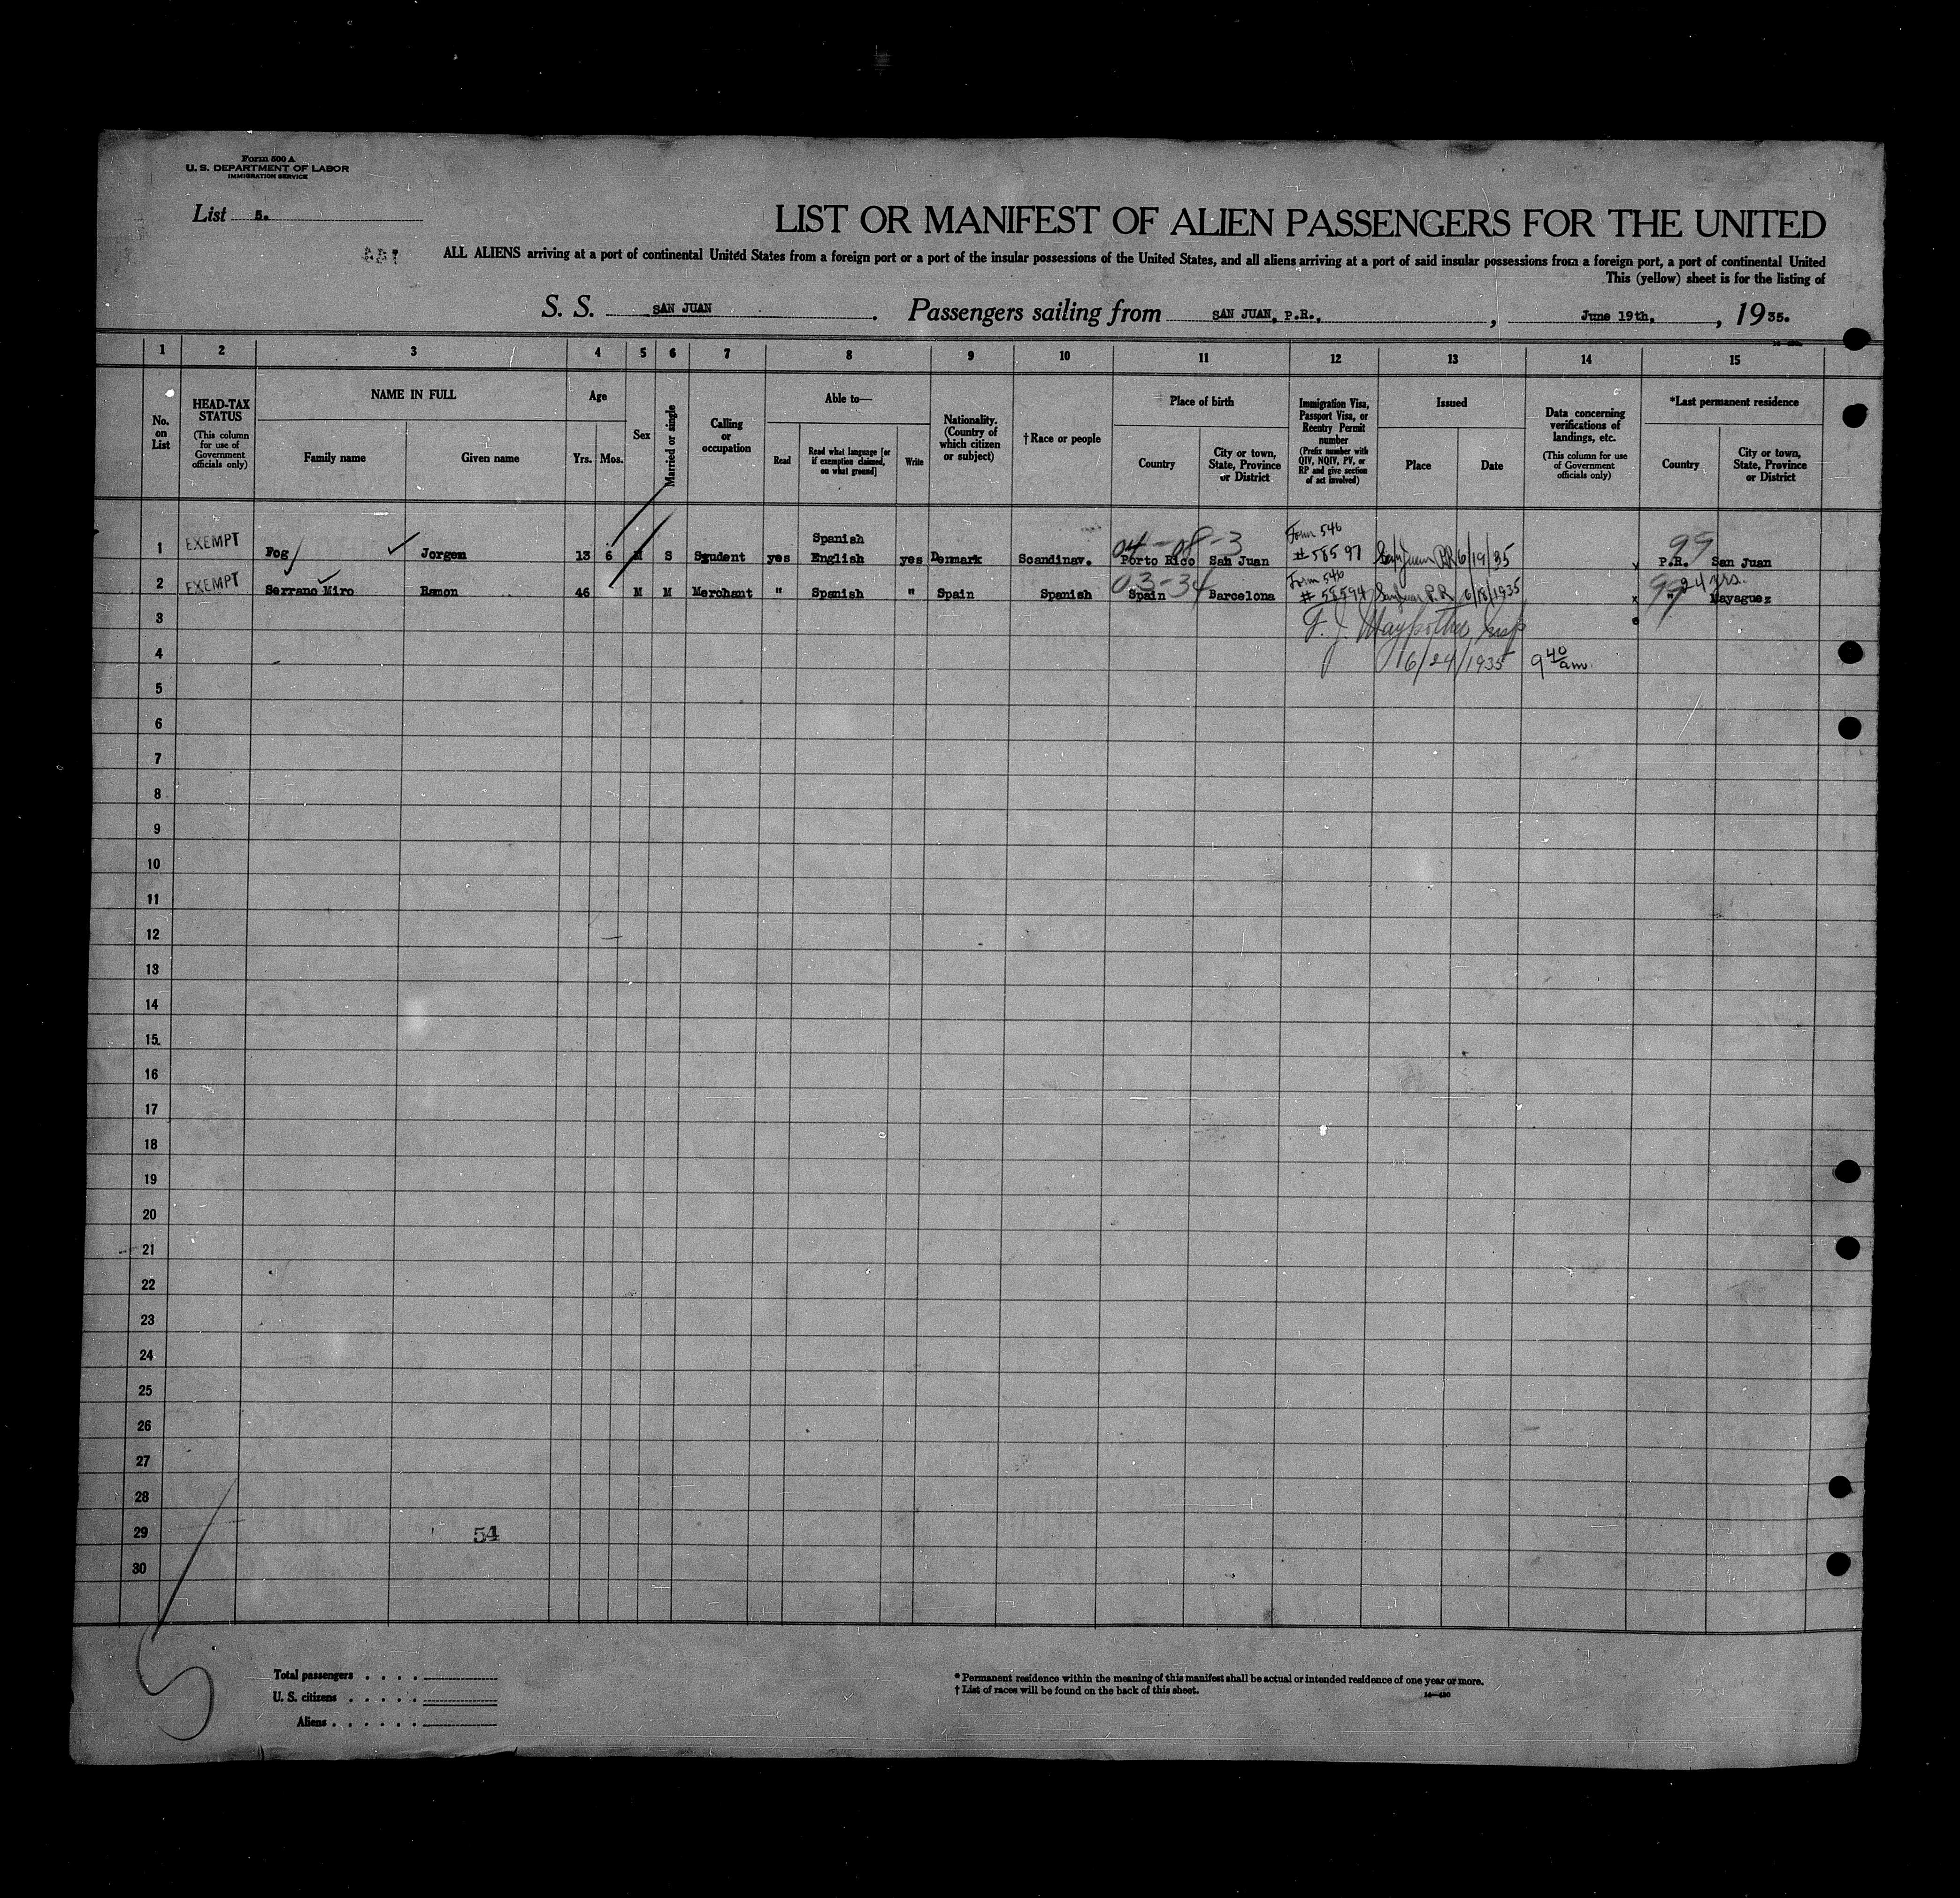 Form 500 A
U. S. DEPARTMENT OF LABOR
IMMIGRATION SERVICE
List 5.
LIST OR MANIFEST OF ALIEN PASSENGERS FOR THE UNITED
ALL ALIENS arriving at a port of continental United States from a foreign port or a port of the insular possessions of the United States, and all aliens arriving at a port of said insular possessions from a foreign port, a port of continental United
This (yellow) sheet is for the listing of
S. S. SAN JUAN. Passengers sailing from SAN JUAN, P.R., , June 19th. , 1935.
1 2 3 4 5 6 7 8 9 10 11 12 13 14 15
No. on List
HEAD-TAX STATUS
(This column for use of Government officials only)
NAME IN FULL
Family name
Given name
Age
Yrs. Mos.
Sex
Married or single
Calling or occupation
Able to—
Read
Read what language [or if exemption claimed, on what ground]
Write
Nationality. (Country of which citizen or subject)
†Race or people
Place of birth
Country
City or town, State, Province or District
Immigration Visa, Passport Visa, or Reentry Permit number
(Prefix number with QIV, NQIV, PV, or RP and give section of act involved)
Issued
Place
Date
Data concerning verifications of landings, etc.
(This column for use of Government officials only)
*Last permanent residence
Country
City or town, State, Province or District
1 EXEMPT Fog Jorgen 13 6 M S Student yes Spanish English yes Denmark Scandinav. 04-08-3 Porto Rico San Juan Form 546 #58597 San Juan P.R. 6/19/35 99 P.R. San Juan
2 EXEMPT Serrano Miro Ramon 46 M M Merchant " Spanish " Spain Spanish 03-34 Spain Barcelona Form 546 #58594 San Juan P.R. 6/18/1935 x 99 24 yrs. " Mayaguez
3 F. J. Insp
4 6/24/1935 9 40 am.
5
6
7
8
9
10
11
12
13
14
15
16
17
18
19
20
21
22
23
24
25
26
27
28
29 54
30
5
Total passengers . . . .
U. S. citizens . . . . .
Aliens . . . . . .
* Permanent residence within the meaning of this manifest shall be actual or intended residence of one year or more.
† List of races will be found on the back of this sheet.
14—430